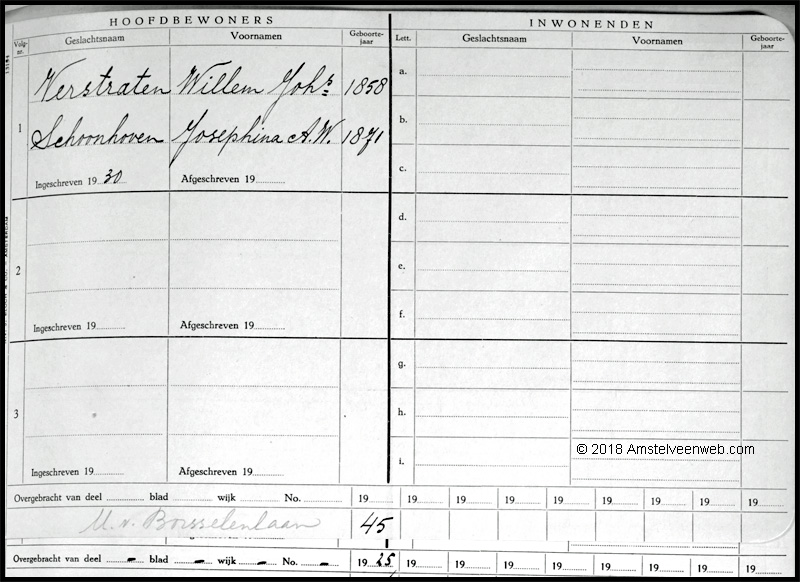 HOOFDBEWONERS
INWONENDEN
Volg-nr. Geslachtsnaam Voornamen Geboorte-jaar Lett. Geslachtsnaam Voornamen Geboorte-jaar
1
Verstraten Willem Johs 1858
Schoonhoven Josephina A.W. 1871
Ingeschreven 19 30 Afgeschreven 19
a.
b.
c.
2
Ingeschreven 19 Afgeschreven 19
d.
e.
f.
3
Ingeschreven 19 Afgeschreven 19
g.
h.
i.
© 2018 Amstelveenweb.com
Overgebracht van deel blad wijk No. 19 19 19 19 19 19 19 19 19
M. v. Borsselenlaan 45
Overgebracht van deel - blad - wijk - No. - 19 25 19 19 19 19 19 19 19 19